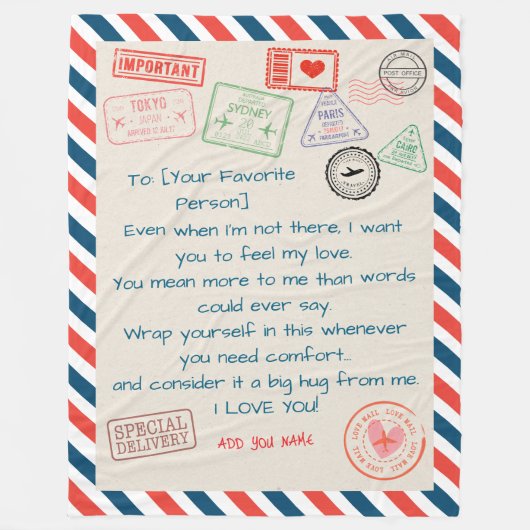 IMPORTANT
AIR MAIL
POST OFFICE
TOKYO
JAPAN
ARRIVED 12 JUL 17
AUSTRALIA
DEPARTED
SYDNEY
PARIS
DEPARTED
CAIRO
TRAVEL
To: [Your Favorite
Person]
Even when I'm not there, I want
you to feel my love.
You mean more to me than words
could ever say.
Wrap yourself in this whenever
you need comfort...
and consider it a big hug from me.
I LOVE YOU!
SPECIAL
DELIVERY
ADD YOU NAME
LOVE MAIL LOVE MAIL LOVE MAIL